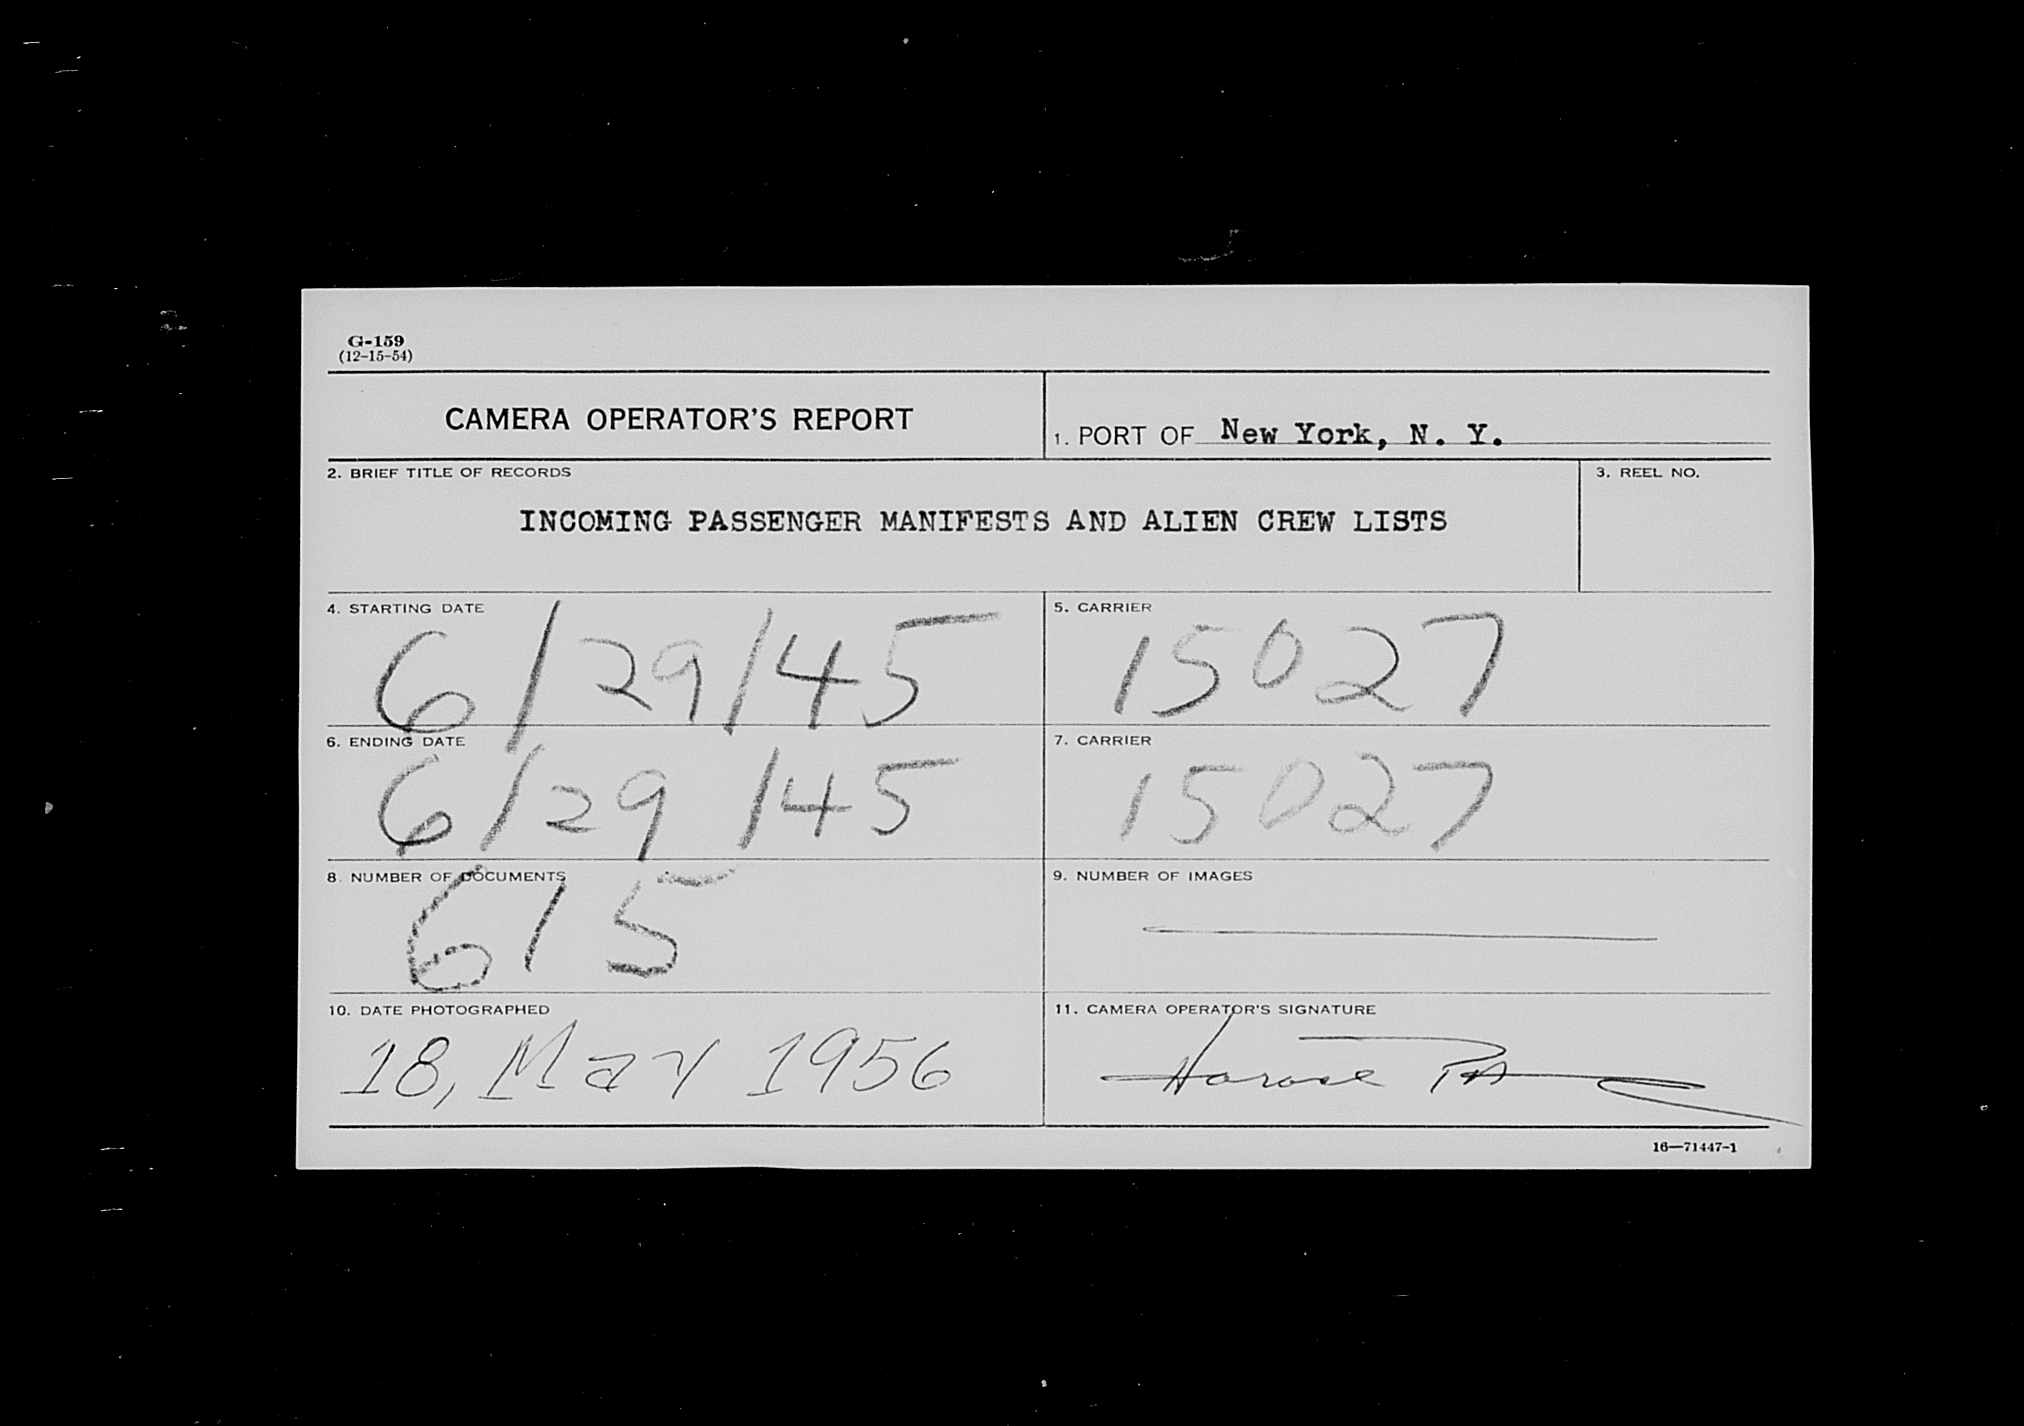 G-159
(12-15-54)
CAMERA OPERATOR'S REPORT
1. PORT OF New York, N. Y.
2. BRIEF TITLE OF RECORDS
3. REEL NO.
INCOMING PASSENGER MANIFESTS AND ALIEN CREW LISTS
4. STARTING DATE
6/29/45
5. CARRIER
15027
6. ENDING DATE
6/29/45
7. CARRIER
15027
8. NUMBER OF DOCUMENTS
615
9. NUMBER OF IMAGES
10. DATE PHOTOGRAPHED
18, May 1956
11. CAMERA OPERATOR'S SIGNATURE
16—71447-1